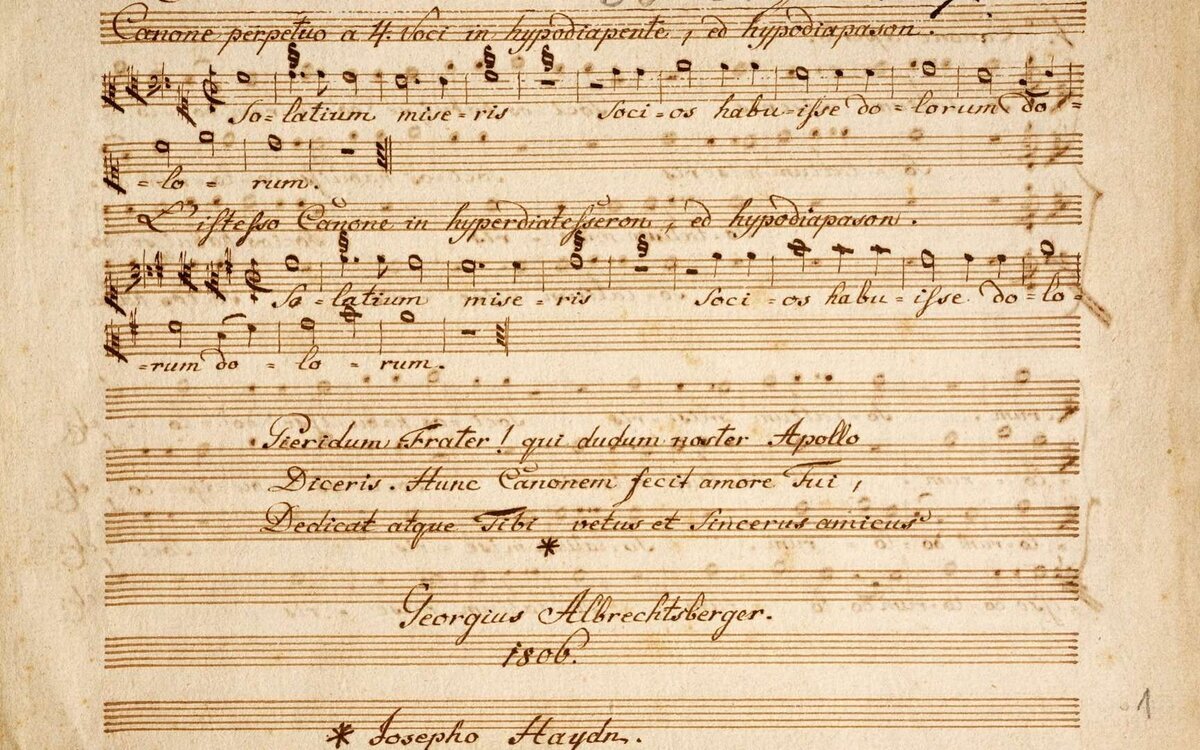 Canone perpetuo a 4. Voci in hypodiapente, ed hypodiapason.
So-latium mise-ris Soci-os habu-isse do-lorum do-
-lo-rum.
L'istesso Canone in hyperdiatesseron, ed hypodiapason.
So-latium mise-ris Soci-os habu-isse do-lo-
-rum do-lo-rum.
Pieridum Frater! qui dudum noster Apollo
Diceris. Hunc Canonem fecit amore Tui,
Dedicat atque Tibi vetus et Sincerus amicus
*
Georgius Albrechtsberger.
1806.
* Josepho Haydn.
1